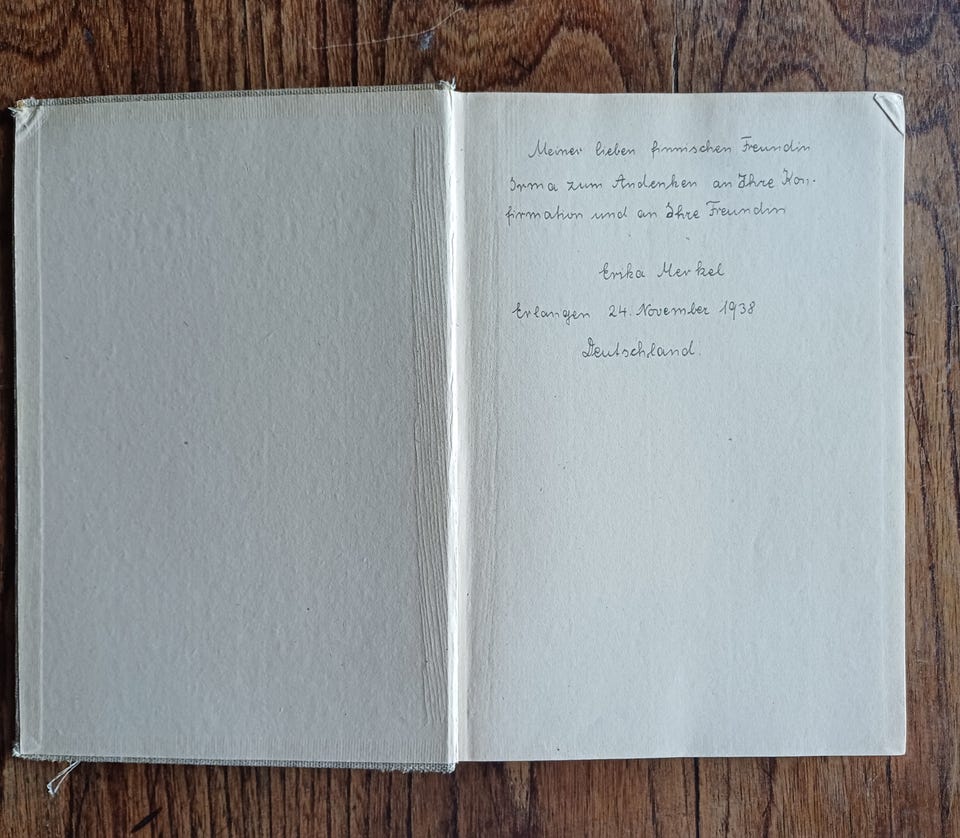 Meiner lieben finnischen Freundin
Irma zum Andenken an Ihre Kon-
firmation und an Ihre Freundin
Erika Merkel
Erlangen 24. November 1938
Deutschland.